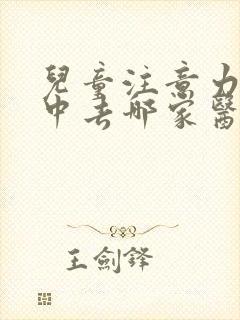 兒童注意力
中去哪家醫
王劍鋒